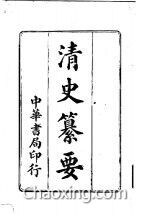 清史纂要
中華書局印行
Chaoxing.com